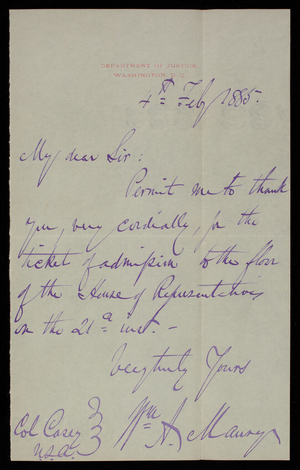 DEPARTMENT OF JUSTICE,
WASHINGTON, D.C.
4th Feby 1885.
My dear Sir:
Permit me to thank
you, very cordially, for the
ticket of admission to the floor
of the House of Representatives
on the 21st inst. –
Very truly Yours
Wm A. Maury
Col Casey
U.S.A.